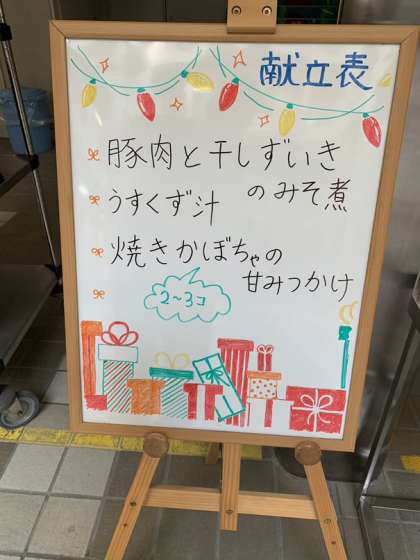 献立表
豚肉と干しずいき
のみそ煮
うすくず汁
焼きかぼちゃの
甘みつかけ
2~3コ